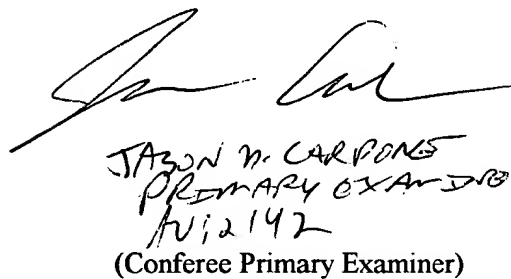 JASON D. CARDONE
PRIMARY EXAMINER
AU: 2142
(Conferee Primary Examiner)